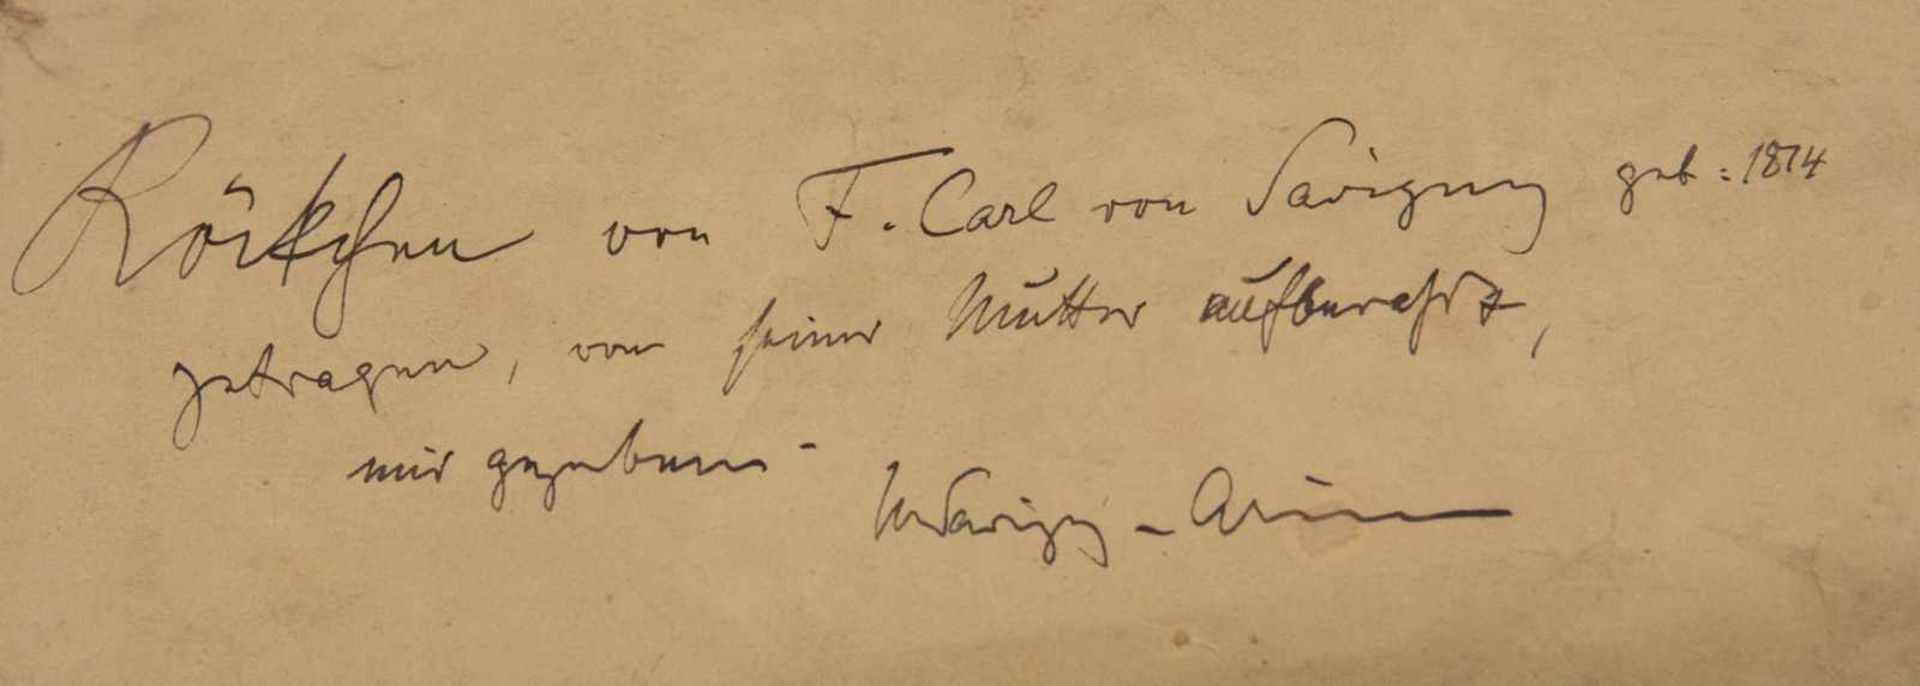 Röckchen von F. Carl von Savigny geb: 1814
getragen, von seiner Mutter aufbewahrt,
mir gegeben -
Savigny - Arnim